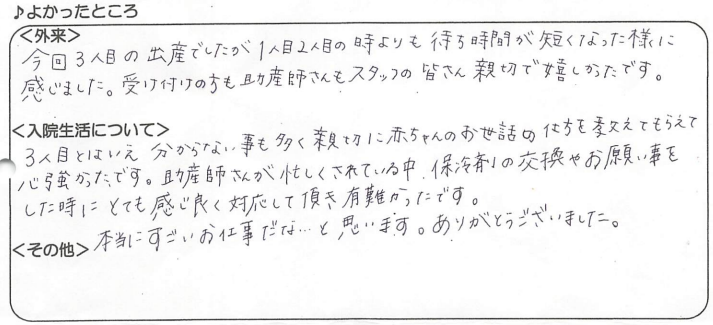 ♪よかったところ
＜外来＞
今回3人目の出産でしたが1人目2人目の時よりも待ち時間が短くなった様に
感じました。受け付けの方も助産師さんもスタッフの皆さん親切で嬉しかったです。
＜入院生活について＞
3人目とはいえ分からない事も多く親切に赤ちゃんのお世話の仕方を教えてもらえて
心強かったです。助産師さんが忙しくされている中、保冷剤の交換やお願い事を
した時にとても感じ良く対応して頂き有難かったです。
＜その他＞本当にすごいお仕事だな…と思います。ありがとうございました。